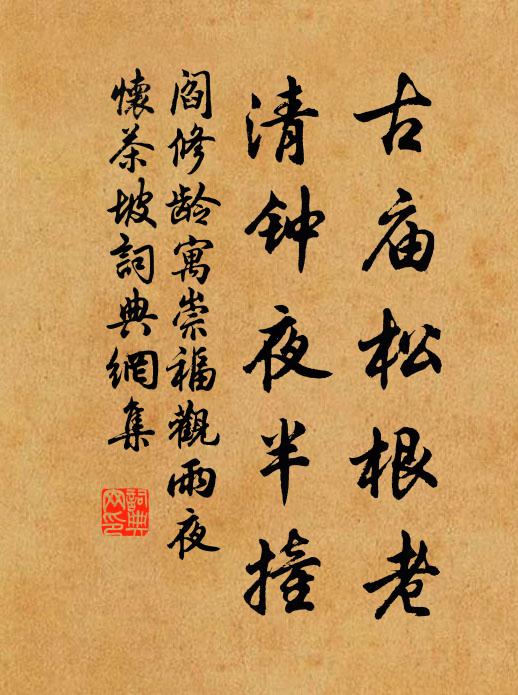 古庙松根老
清钟夜半撞
阎修龄寓崇福觀雨夜
懷茶坡詞典網集
詞典网印